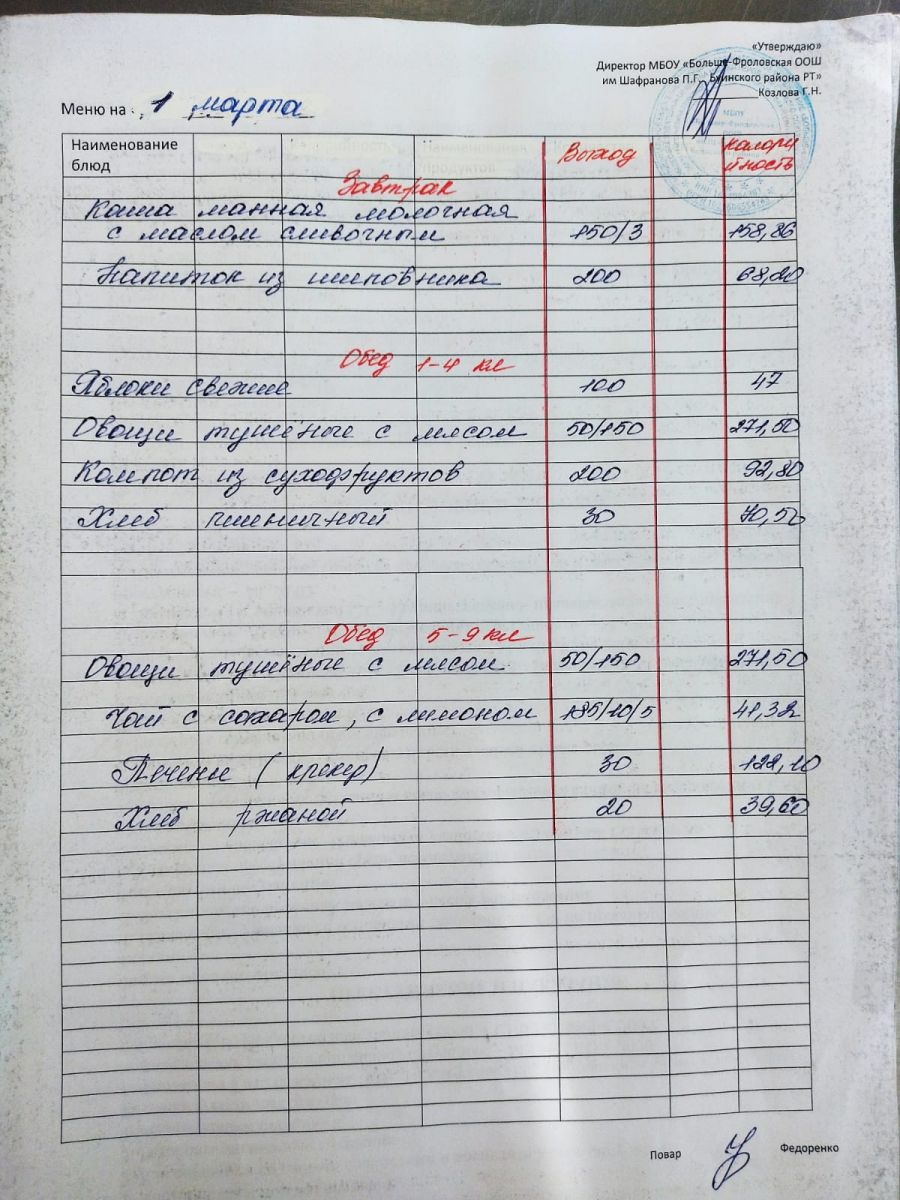 «Утверждаю»
Директор МБОУ «Больше-Фроловская ООШ
им Шафранова П.Г. Буинского района РТ»
Козлова Г.Н.
Меню на 1 марта
Наименование блюд Выход калорийность
Завтрак
Каша манная молочная
с маслом сливочным 150/3 158,86
Напиток из шиповника 200 68,20
Обед 1-4 кл
Яблоки свежие 100 47
Овощи тушёные с мясом 50/150 271,50
Компот из сухофруктов 200 92,80
Хлеб пшеничный 30 70,50
Обед 5-9 кл
Овощи тушёные с мясом 50/150 271,50
Чай с сахаром, с лимоном 185/10/5 41,32
Печенье (крекер) 30 122,10
Хлеб ржаной 20 39,60
Повар Федоренко